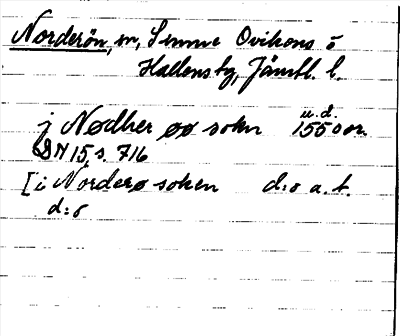 Norderön, sn, Sunne Ovikens o
Hallens tg, Jämtl. l.
j Nødher øø sokn u.d. 1550 or.
DN 15, s. 716
[i Norderø soken d:o a.t.
d:o